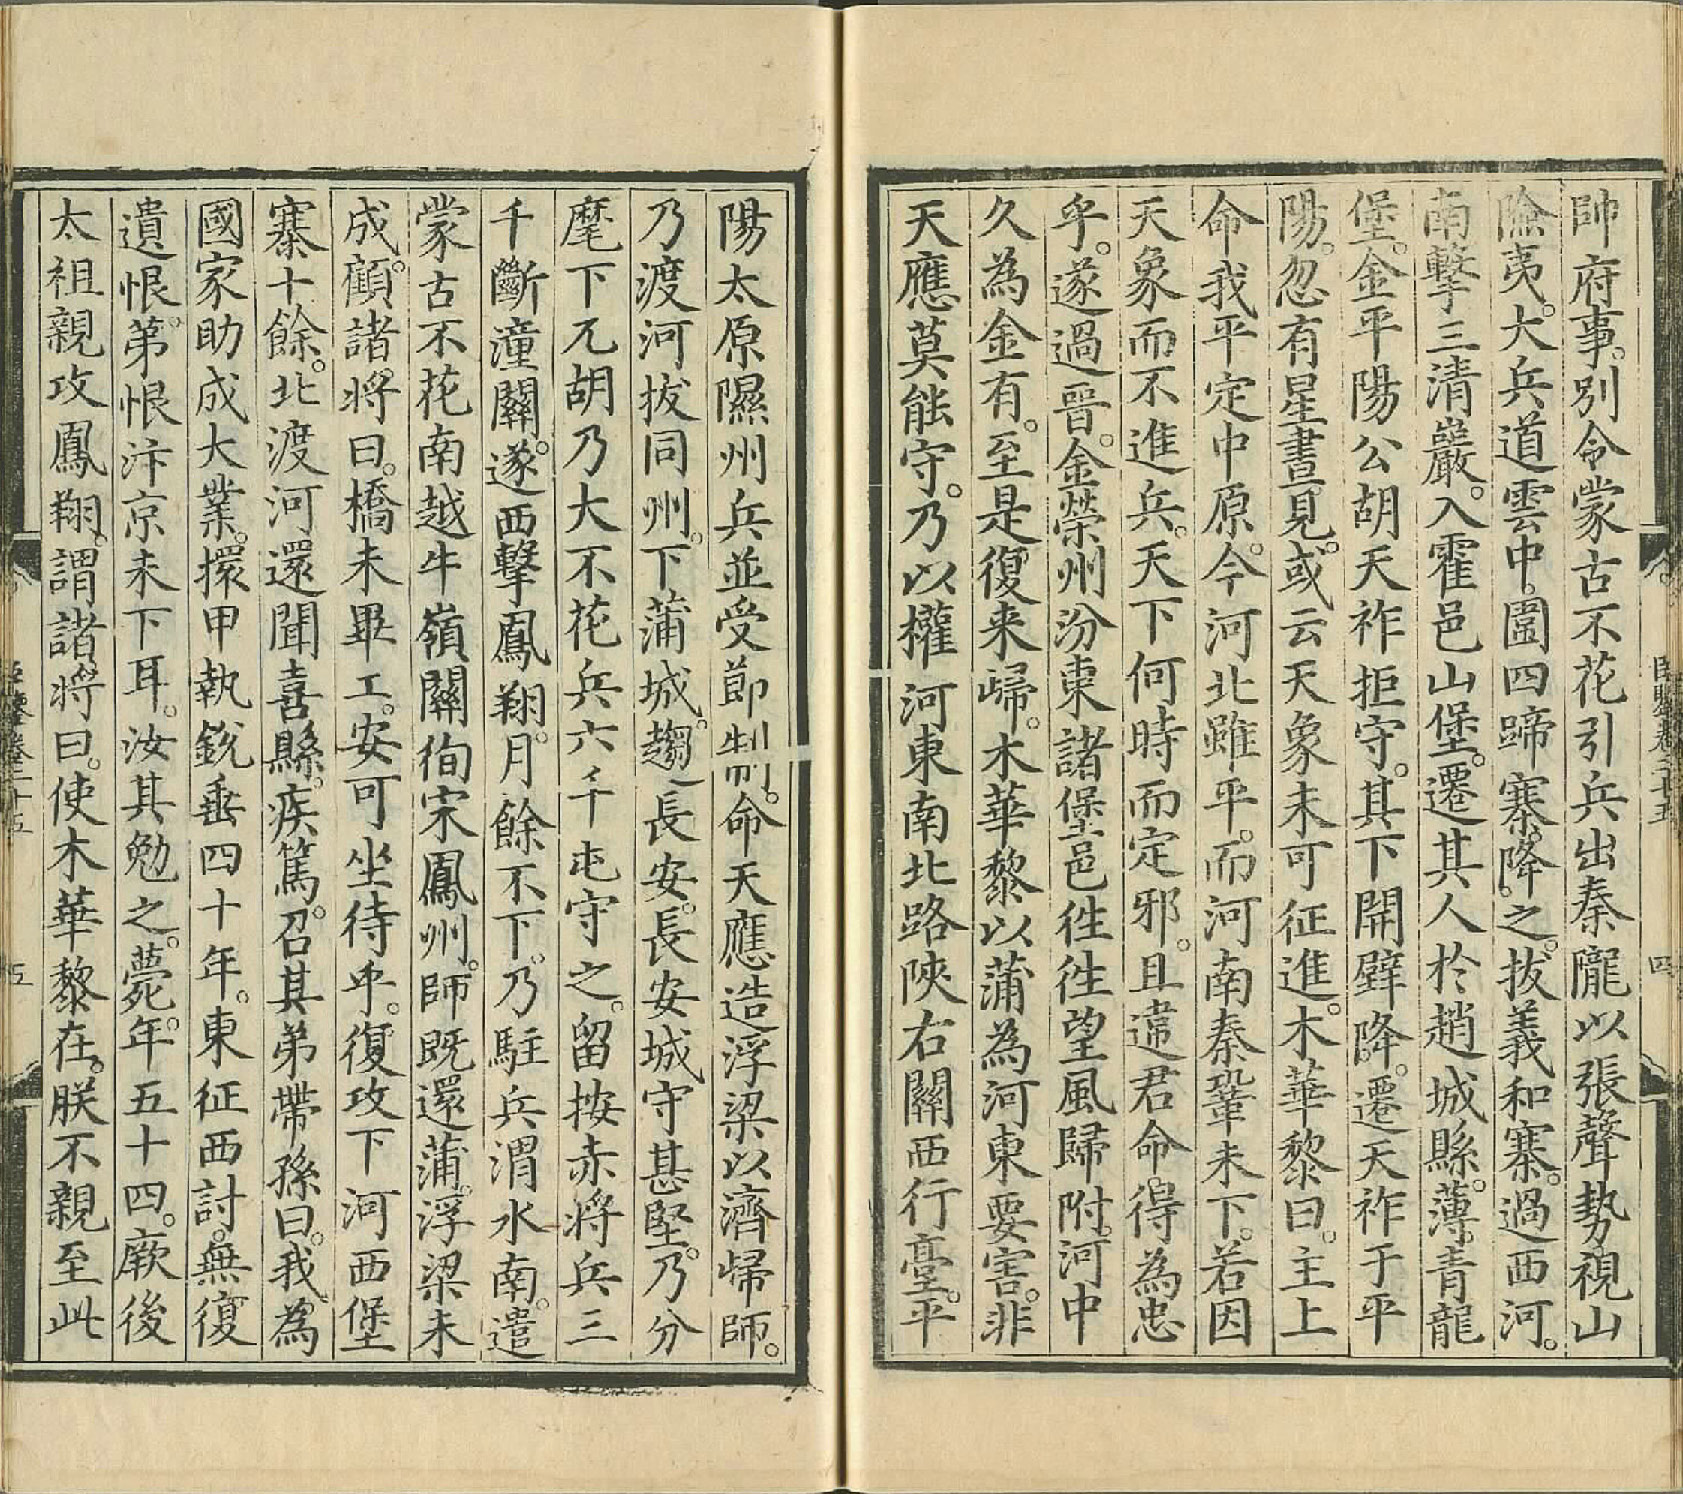 帥府事。別令蒙古不花引兵出秦隴以張聲勢視山
險夷。大兵道雲中。圖四蹄寨。降之。拔義和寨。過西河。
南擊三清巖。入霍邑山堡。遷其人於趙城縣。薄青龍
堡。金平陽公胡天祚拒守。其下開壁降。遷天祚于平
陽。忽有星晝見。或云天象未可征進。木華黎曰。主上
命我平定中原。今河北雖平。而河南秦鞏未下。若因
天象而不進兵。天下何時而定邪。且違君命。得為忠
乎。遂過晉。金榮州汾東諸堡邑徃徃望風歸附。河中
久為金有。至是復来歸。木華黎以蒲為河東要害。非
天應莫能守。乃以權河東南北路陝右關西行臺。平
陽太原隰州兵並受節制。命天應造浮梁以濟歸師。
乃渡河拔同州。下蒲城。趨長安。長安城守甚堅。乃分
麾下兀胡乃大不花兵六千屯守之。留按赤將兵三
千斷潼關。遂西擊鳳翔。月餘不下。乃駐兵渭水南。遣
蒙古不花南越牛嶺關徇宋鳳州。師既還蒲。浮梁未
成。顧諸將曰。橋未畢工。安可坐待乎。復攻下河西堡
寨十餘。北渡河還聞喜縣。疾篤。召其弟帶孫曰。我為
國家助成大業。擐甲執銳垂四十年。東征西討。無復
遺恨。第恨汴京未下耳。汝其勉之。薨。年五十四。厥後
太祖親攻鳳翔。謂諸將曰。使木華黎在。朕不親至此